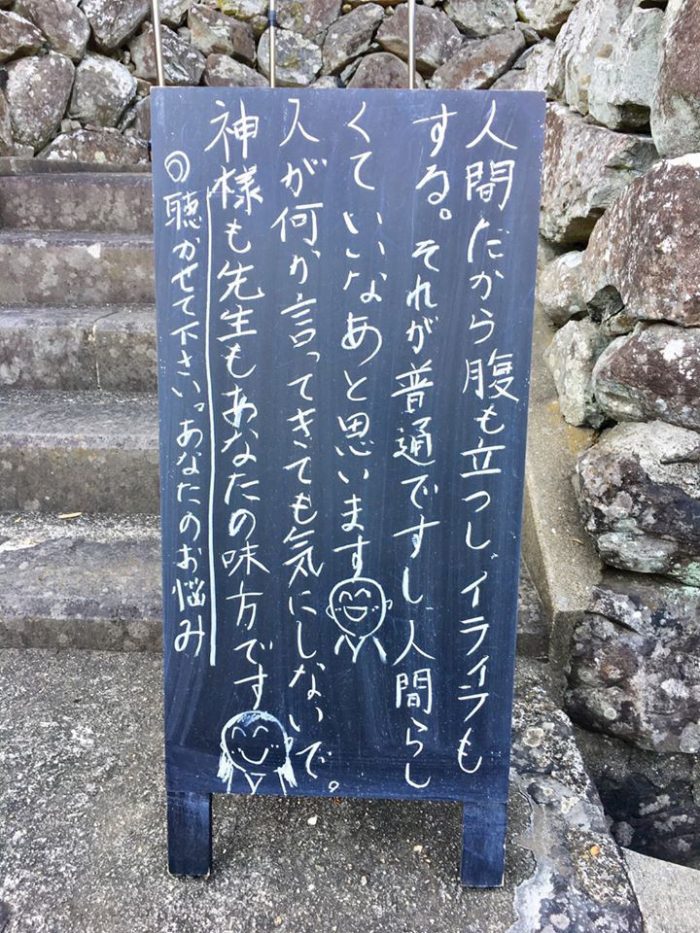 人間だから腹も立つし、イライラも
する。それが普通ですし人間らし
くていいなあと思います
人が何か言ってきても気にしないで。
神様も先生もあなたの味方です
聴かせて下さい。あなたのお悩み